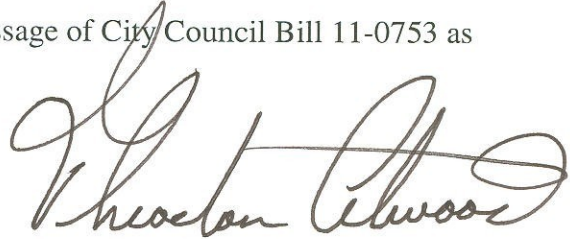 ssage of City Council Bill 11-0753 as
Theodore Atwood